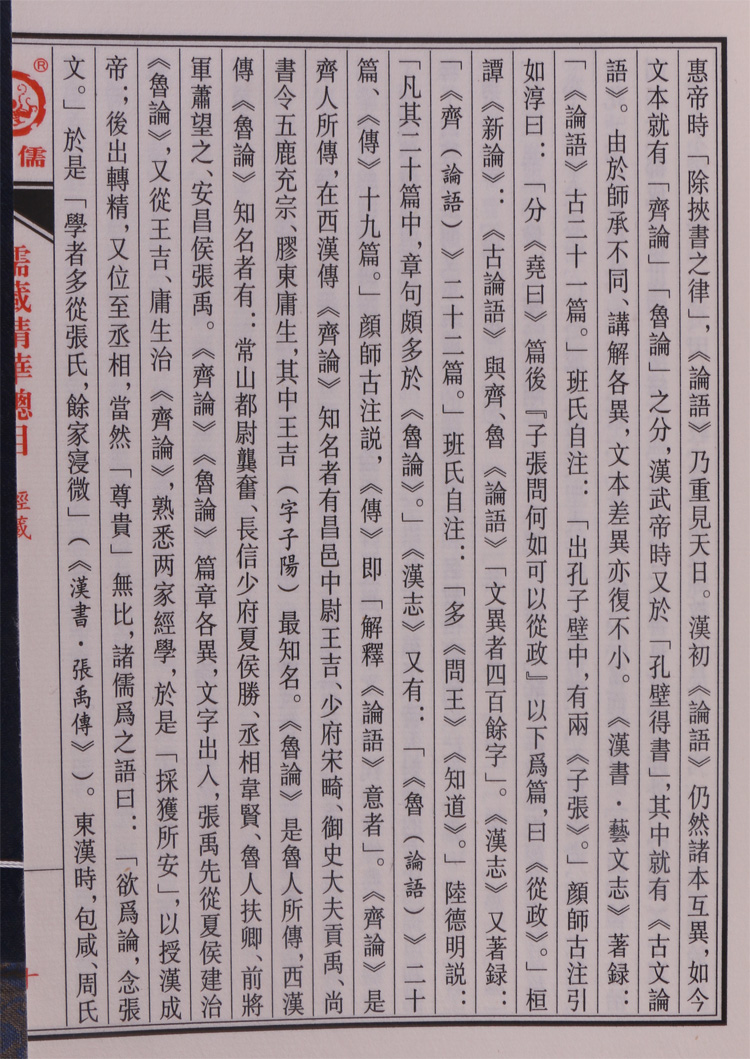 惠帝時「除挾書之律」，《論語》乃重見天日。漢初《論語》仍然諸本互異，如今
文本就有「齊論」「魯論」之分，漢武帝時又於「孔壁得書」，其中就有《古文論
語》。由於師承不同、講解各異，文本差異亦復不小。《漢書·藝文志》著録：
「《論語》古二十一篇。」班氏自注：「出孔子壁中，有兩《子張》。」顔師古注引
如淳曰：「分《堯曰》篇後『子張問何如可以從政』以下爲篇，曰《從政》。」桓
譚《新論》：《古論語》與齊、魯《論語》「文異者四百餘字」。《漢志》又著録：
「《齊（論語）》二十二篇。」班氏自注：「多《問王》《知道》。」陸德明説：
「凡其二十篇中，章句頗多於《魯論》。」《漢志》又有：「《魯（論語）》二十
篇、《傳》十九篇。」顔師古注説，《傳》即「解釋《論語》意者」。《齊論》是
齊人所傳，在西漢傳《齊論》知名者有昌邑中尉王吉、少府宋畸、御史大夫貢禹、尚
書令五鹿充宗、膠東庸生，其中王吉（字子陽）最知名。《魯論》是魯人所傳，西漢
傳《魯論》知名者有：常山都尉龔奮、長信少府夏侯勝、丞相韋賢、魯人扶卿、前將
軍蕭望之、安昌侯張禹。《齊論》《魯論》篇章各異，文字出入，張禹先從夏侯建治
《魯論》，又從王吉、庸生治《齊論》，熟悉两家經學，於是「採獲所安」，以授漢成
帝；後出轉精，又位至丞相，當然「尊貴」無比，諸儒爲之語曰：「欲爲論，念張
文。」於是「學者多從張氏，餘家寖微」（《漢書·張禹傳》）。東漢時，包咸、周氏
®
儒
儒藏精華總目 經藏